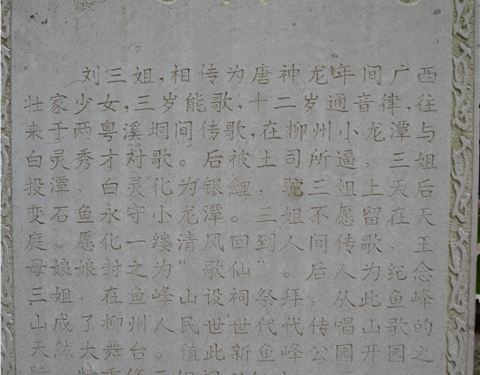 刘三姐,相传为唐神龙年间广西
壮家少女,三岁能歌,十二岁通音律,往
来于两粤溪垌间传歌,在柳州小龙潭与
白灵秀才对歌。后被土司所逼,三姐
投潭,白灵化为银鲤,驼三姐上天后
变石鱼永守小龙潭。三姐不愿留在天
庭。愿化一缕清风回到人间传歌,王
母娘娘封之为“歌仙”。后人为纪念
三姐,在鱼峰山设祠祭拜,从此鱼峰
山成了柳州人民世世代代传唱山歌的
天然大舞台。值此新鱼峰公园开园之